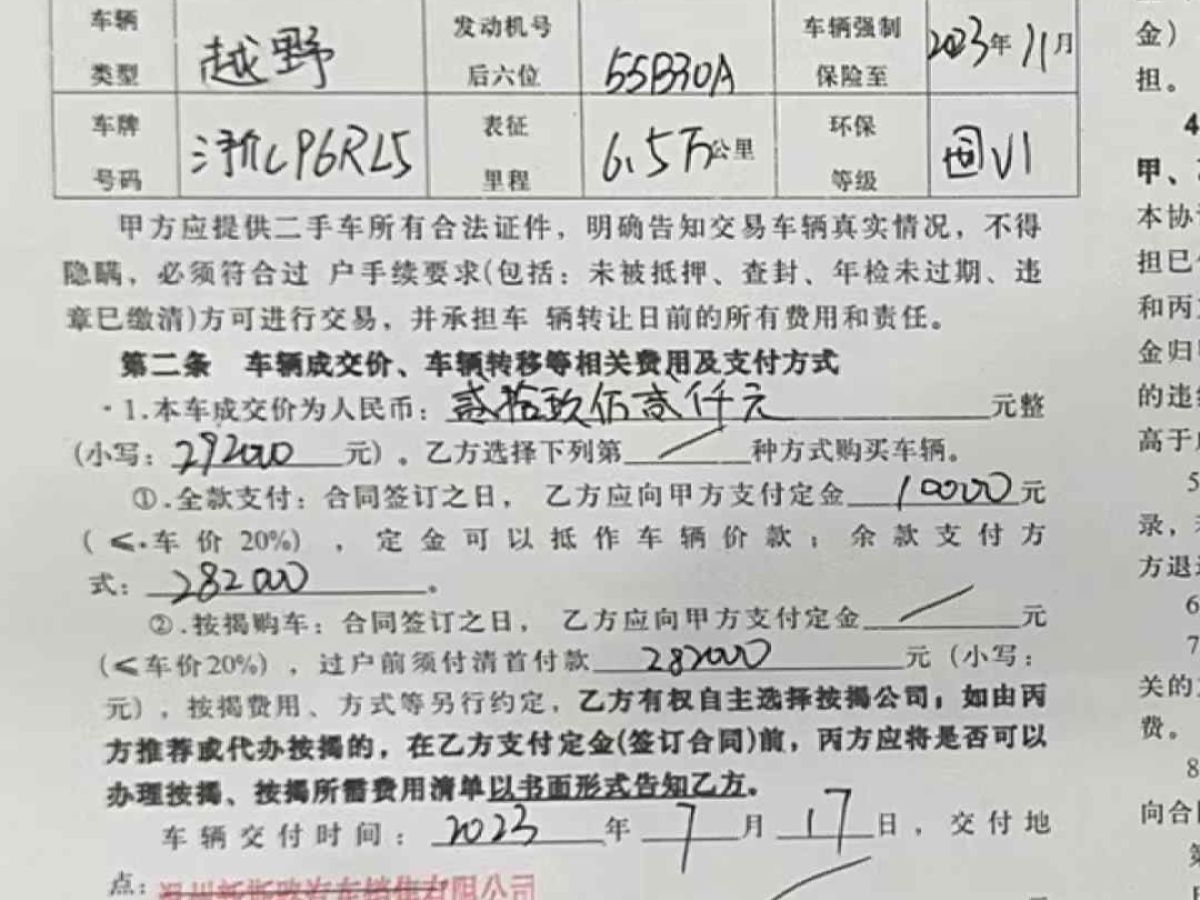 车辆类型 越野 发动机号后六位 55B30A 车辆强制保险至 2023年11月
车牌号码 浙CP6RL5 表征里程 6.5万公里 环保等级 国VI
甲方应提供二手车所有合法证件，明确告知交易车辆真实情况，不得
隐瞒，必须符合过 户手续要求(包括：未被抵押、查封、年检未过期、违
章已缴清)方可进行交易，并承担车 辆转让日前的所有费用和责任。
第二条 车辆成交价、车辆转移等相关费用及支付方式
1.本车成交价为人民币：贰拾玖佰贰仟元 元整
(小写：292000 元)。乙方选择下列第 / 种方式购买车辆。
①.全款支付：合同签订之日， 乙方应向甲方支付定金 10000 元
(≤.车价20%)，定金可以抵作车辆价款；余款支付方
式：282000 。
②.按揭购车：合同签订之日， 乙方应向甲方支付定金 / 元
(≤车价20%)，过户前须付清首付款 282000 元（小写：
元)，按揭费用、方式等另行约定，乙方有权自主选择按揭公司；如由丙
方推荐或代办按揭的，在乙方支付定金(签订合同)前，丙方应将是否可以
办理按揭、按揭所需费用清单以书面形式告知乙方。
车辆交付时间：2023 年 7 月 17 日，交付地
点：
金）
担。
4
甲、
本协
担已
和丙
金归
的违
高于
5
录，
方退
6
7
关的
费。
8
向合
第